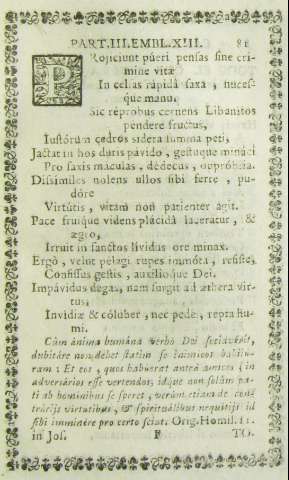 PART.III.EMBL.XIII. 81
PRojiciunt púeri pensas sine cri-
mine vitæ
In celsas rápidâ saxa, nucesq́-
que manu.
Sic réprobus cernens Libanitos
pendere fructus,
Justórum cedros sídera summa peti,
Jactat in hos duris pavido, gestuque mináci
Pro saxis maculas, dédecus, oppróbria.
Dissimiles nolens ullos sibi ferre, pu-
dóre
Virtútis, vitam non patienter agit.
Pace fruíque videns plácidâ laceratur, &
ægro,
Irruit in sanctos lívidus ore minax.
Ergò, veint pelagi rupes immóta, resiste,
Confisus gestis, auxilióque Dei.
Impávidus degas, nam surgit ad æthera vir-
tus,
Invidiæ & cóluber, nec pede, repta hu-
mi.
Cùm ánima humána verbo Dei sociáverit,
dubitáre non debet statim se inimícos habitu-
ram: Et eos, quos habúerat antea amícos, in
adversários esse verténdos, idque non solùm pa-
ti ab homínibus se speret, verùm étiam de con-
tráriis virtutibus, & spirituálibus nequítiis id
sibi immínére pro certo sciat. Orig. Homil. 11.
in Jos. F TO.